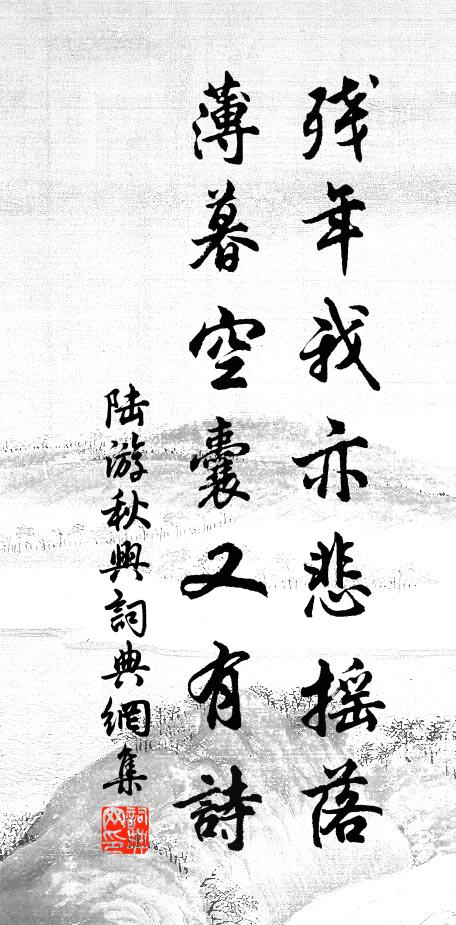 残年我亦悲摇落
薄暮空囊又有詩
陆游秋興詞典網集